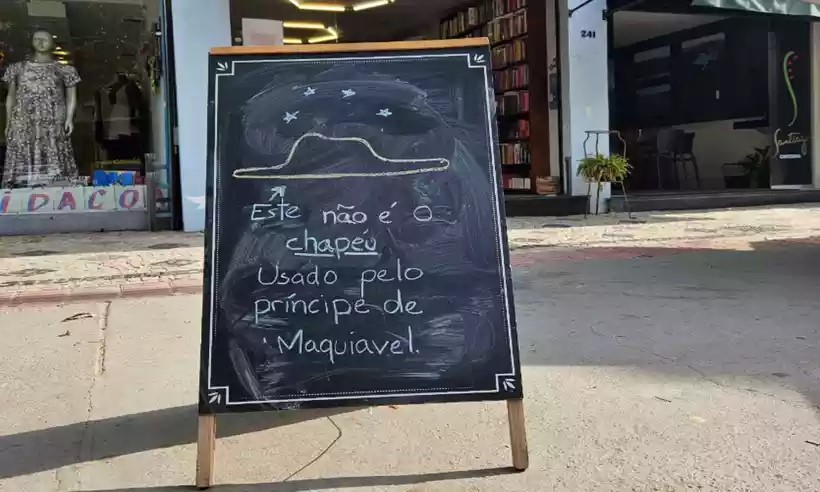 241
IDACO
Santiag
Este não é o
chapéu
Usado pelo
príncipe de
Maquiavel.